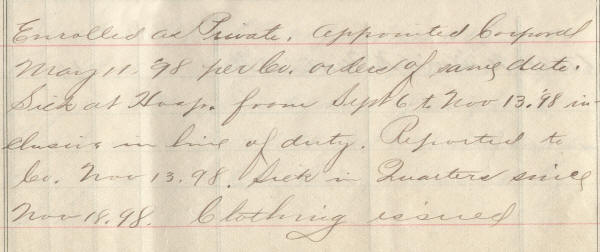 Enrolled as Private. Appointed Corporal
May 11, '98 per Co. orders of same date.
Sick at Hosp. from Sept 6 to Nov 13. '98 in-
clusive in line of duty. Reported to
Co. Nov 13. 98. Sick in Quarters since
Nov 18. 98. Clothing issued